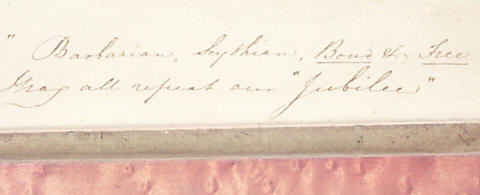 " Barbarian, Scythian, Bond & Free
May all repeat our "Jubilee"